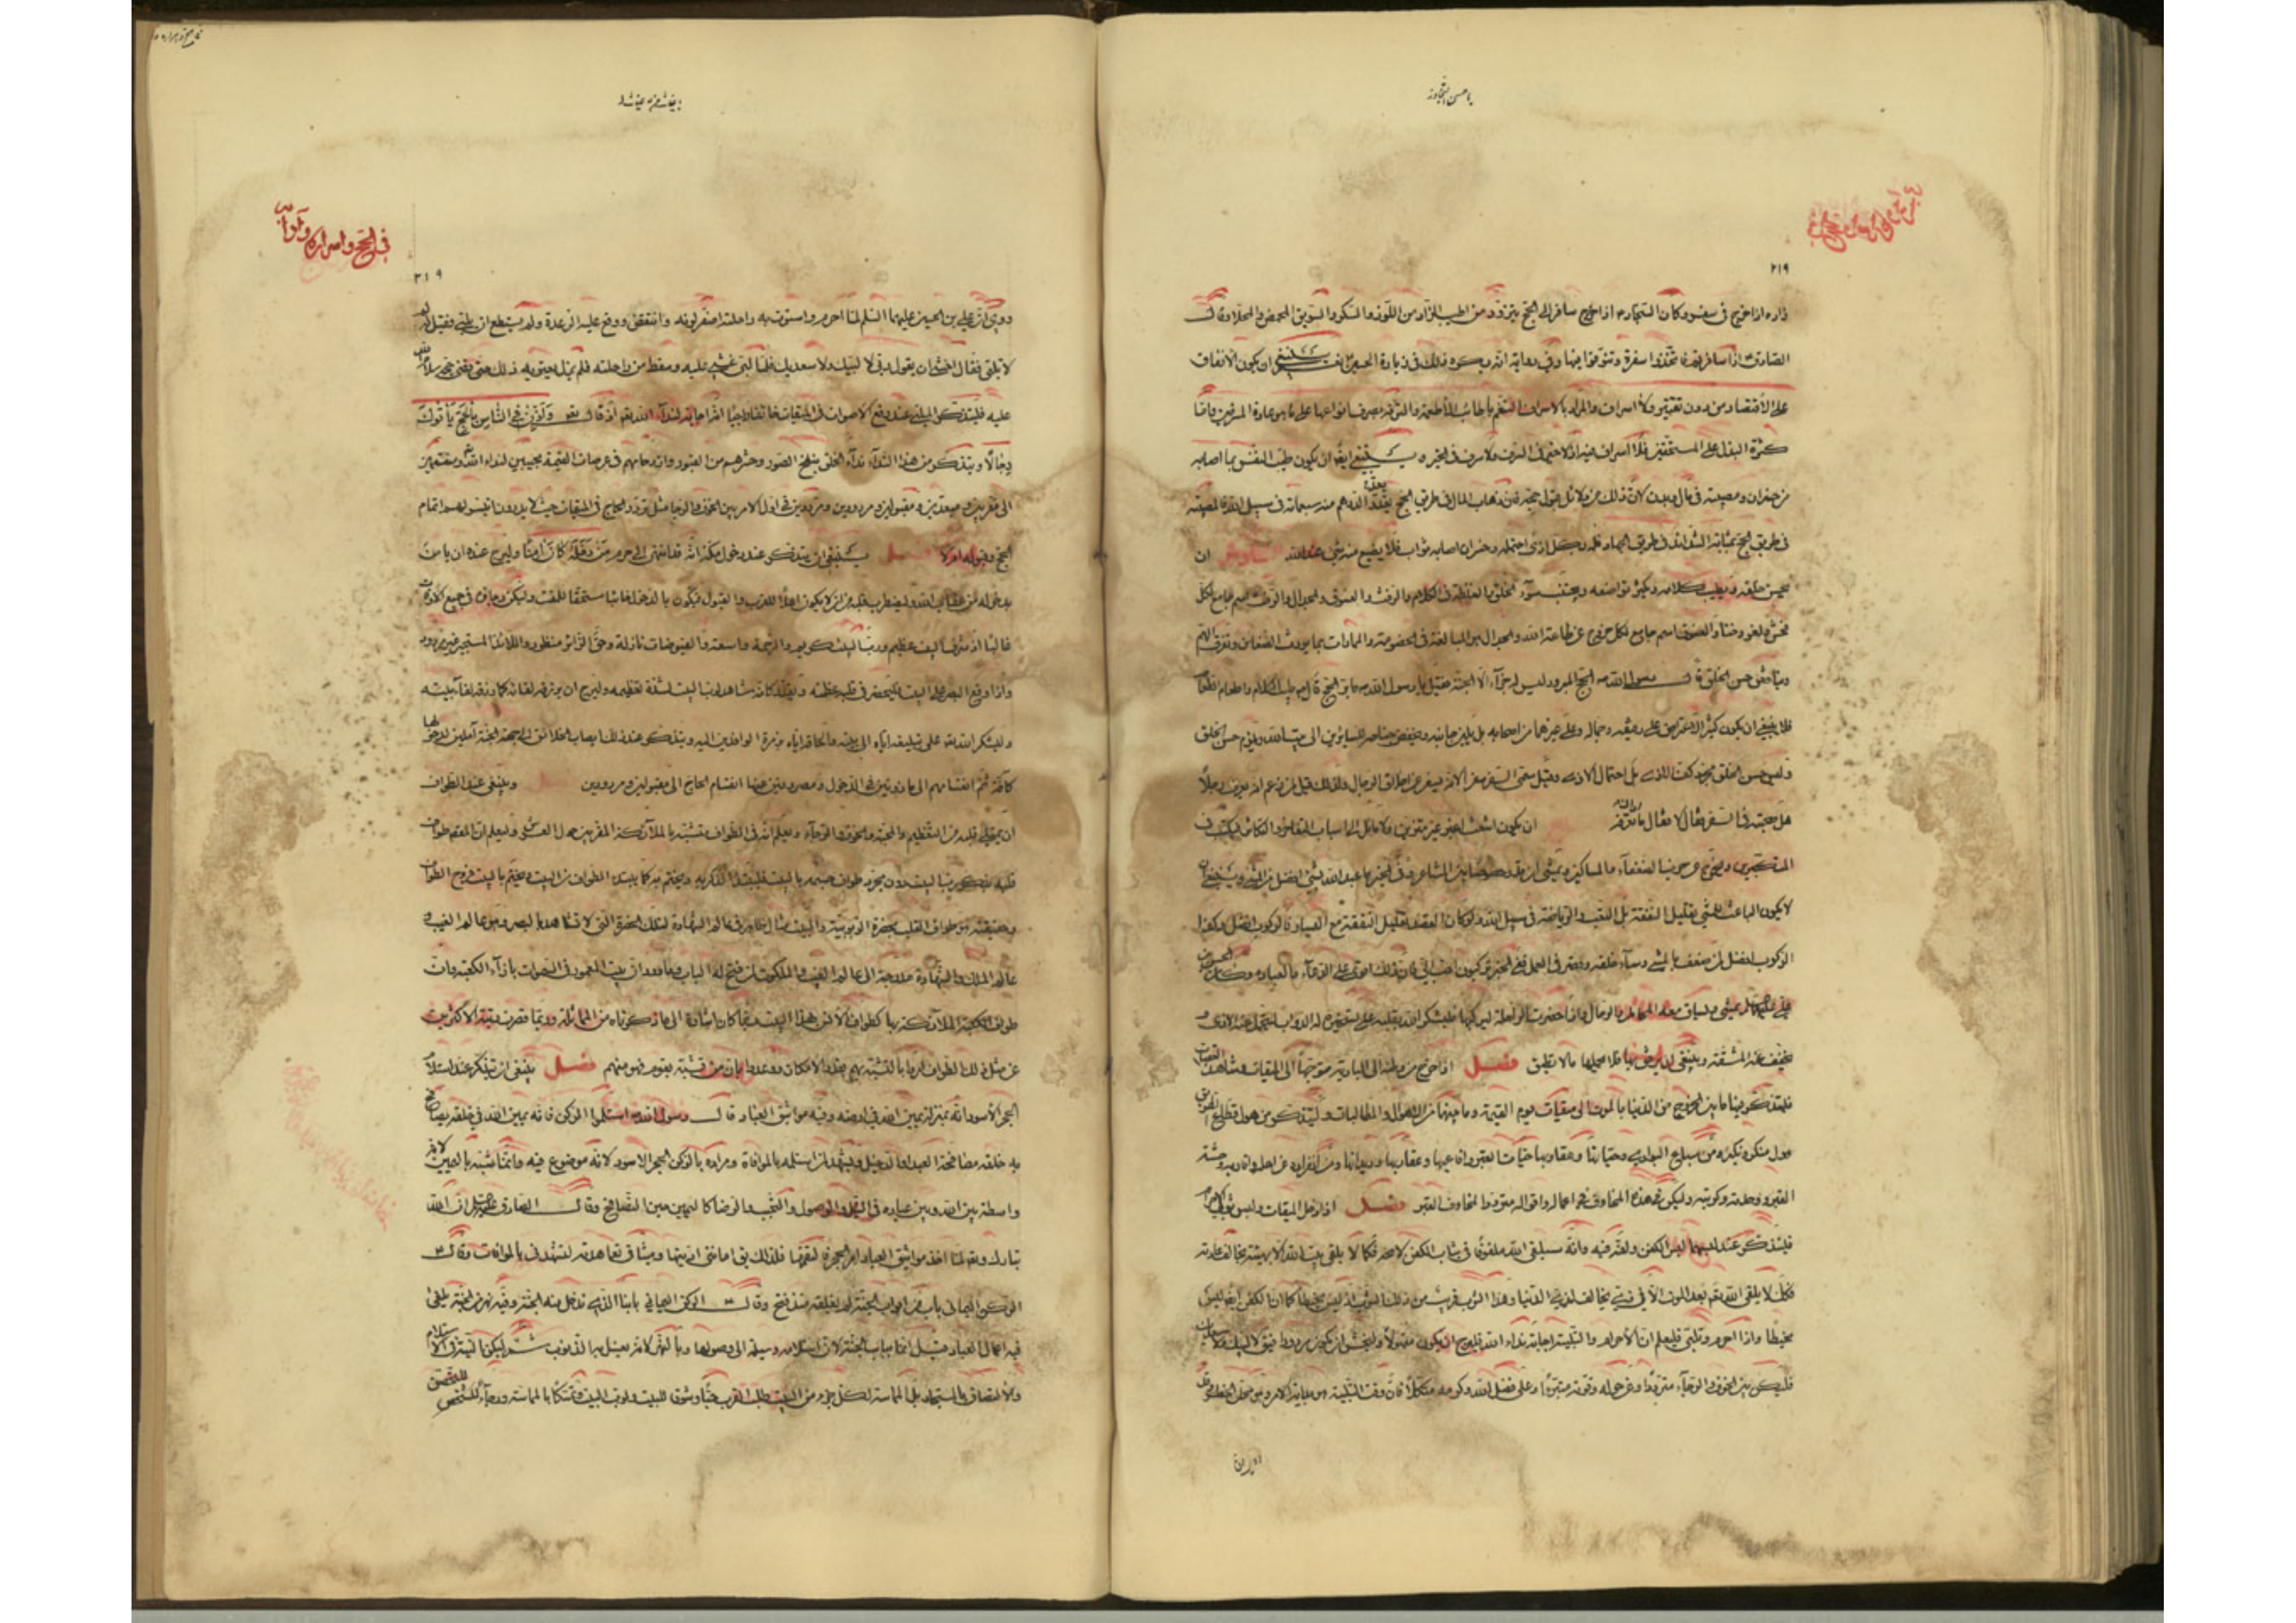 يا حسن التجاوز
٢١٩
زاره اذا خرج فى سفر وكان السجاد م اذا خرج سافر الى الحج يتزود من اطيب الزاد من اللوز والسكر والسويق المحمض والمحلا وقال
الصادق ع اذا سافرتم فاتخذوا سفرة وتنوقوا فيها وفى رواية انه يكره ذلك فى زيارة الحسين ينبغى ان يكون الانفاق
على الاقتصاد من دون تقتير ولا اسراف والمراد بالاسراف التنعم باطائب الاطعمة والترفه بصرف انواعها على ما هو عادة المترفين واما
كثرة البذل على المستحقين فلا اسراف فيه اذ لا خير فى السرف ولا سرف فى الخير ه ينبغى ايضا ان يكون طيب النفس بما اصابه
من خسران ومصيبة فى مال وبدن لان ذلك من دلائل قبول حجه فان ذهاب المال فى طريق الحج يعد الدرهم منه سبعمائة فى سبيل الله فالمصيبة
فى طريق الحج بمثابة الشدائد فى طريق الجهاد فله بكل اذى احتمله وخسران اصابه ثواب فلا يضيع منه شئ عند الله السادس ان
يحسن خلقه ويطيب كلامه ويكثر تواضعه ويجتنب سوء الخلق والغلظة فى الكلام والرفث والفسوق والجدال والرفث اسم جامع لكل
فحش ولغو وخنا والفسوق اسم جامع لكل خروج عن طاعة الله والجدال هو المبالغة فى الخصومة والمماراة بما يورث الضغائن ويفرق الهم
ويناقض حسن الخلق قال رسول الله ص الحج المبرور ليس له جزآء الا الجنة فقيل يا رسول الله ما بر الحج قال طيب الكلام واطعام الطعام
فلا ينبغى ان يكون كثير الاعتراض على رفيقه وجماله وعلى غيرهما من اصحابه بل يلين جانبه ويخفض جناحه للسائرين الى بيت الله ويلزم حسن الخلق
وليس حسن الخلق مجرد كف الاذى بل احتمال الاذى وقيل سمى السفر سفرا لانه يسفر عن اخلاق الرجال ولذلك قيل لمن زعم انه يعرف رجلا
هل صحبته فى السفر فقال لا فقال ما تعرفه ان يكون اشعث اغبر غير متزين ولا مايل الى اسباب التفاخر والتكاثر فيكتب فى
المتكبرين ويخرج عن حزب الضعفآء والمساكين ويمشى ان قدر خصوصا بين المشاعر وفى الخبر ما عبد الله بشئ افضل من المشى وينبغى ان
لا يكون الباعث للمشى تقليل النفقة بل التعب والرياضة فى سبيل الله ولو كان القصد تقليل النفقة مع اليسار فالركوب افضل وكذا
الركوب افضل لمن ضعف بالمشى وسآء خلقه وقصر فى العمل ففى الخبر تركبون احب الى فان ذلك اقوى على الدعآء والعبادة وكان الحسن بن
على عليهما السلام يمشى ويساق معه المحامل والرحال واذا حضرت الراحلة ليركبها فليشكر الله بقلبه على تسخيره له الدواب ليتحمل عنه الاذى و
يخفف عنه المشقة وينبغى ان يرفق بها فلا يحملها ما لا تطيق فصل اذا خرج من وطنه الى البادية متوجها الى الميقات وشاهد العقبات
فليتذكر بها ما بين الخروج من الدنيا بالموت الى ميقات يوم القيمة وما بينهما من الاهوال والمطالبات وليتذكر من هول قطاع الطريق
هول منكر ونكير ومن سباع البوادى وحياتها وعقاربها حيات القبر وافاعيها وعقاربها وديدانها ومن انفراده عن اهله واقاربه وحشة
القبر ووحدته وكربته وليكن فى هذه المخاوف فى اعماله واقواله متزودا لمخاوف القبر فصل اذا دخل الميقات ولبس ثوبى الاحرام
فليتذكر عند لبسهما لبس الكفن ولفه فيه وانه سيلقى الله ملفوفا فى ثياب الكفن لا محة فكما لا يلقى بيت الله الا بهيئة تخالف عادته
فكك لا يلقى الله تع بعد الموت الا فى زى يخالف لزى الدنيا وهذا الثوب قريب من ذلك الثوب اذ ليس مخيطا كما ان الكفن ايضا ليس
مخيطا واذا احرم وتلبى فليعلم ان الاحرام والتلبية اجابة نداء الله فليرج ان يكون مقبولا وليخش ان يكون مردودا فيق لا لبيك ولا سعديك
فليكن بين الخوف والرجآء مترددا وعن حوله وقوته متبرئا وعلى فضل الله وكرمه متكلا فان وقت التلبية هو بداية الامر وهو محل الخطر وقد
فى الحج واسراره وآدابه
٢١٩
روى ان على بن الحسين عليهما السلم لما احرم واستوت به راحلته اصفر لونه وانتفض ووقع عليه الرعدة ولم يستطع ان يلبى فقيل له
لا تلبى فقال اخشى ان يقول ربى لا لبيك ولا سعديك فلما لبى غشى عليه وسقط من راحلته فلم يزل يعتريه ذلك حتى قضى حجه سلام الله
عليه فليتذكر الملبى عند رفع الاصوات فى الميقات خائفا راجيا انه اجابة لندآء الله تع اذ قال تعم وَاَذِّنْ فِى النَّاسِ بِالْحَجِّ يَأْتُوكَ
رِجَالًا ويتذكر من هذا الندآء ندآء الخلق بنفخ الصور وحشرهم من القبور وازدحامهم فى عرصات القيمة مجيبين لنداء الله ومنقسمين
الى مقربين ومبعدين ومقبولين ومردودين ومترددين فى اول الامر بين الخوف والرجا مثل تردد الحاج فى الميقات حيث لا يدرون ايتيسر لهم اتمام
الحج وقبوله ام لا فصل ينبغى ان يتذكر عند دخول مكة انه قد انتهى الى حرم مَنْ دَخَلَهُ كَانَ اٰمِنًا وليرج عنده ان يأمن
بدخوله من عقاب الله وليضطرب قلبه من ان لا يكون اهلا للقرب والقبول فيكون بالدخول خائبا مستحقا للمقت وليكن رجاؤه فى جميع الاوقات
غالبا اذ شرف البيت عظيم ورب البيت كريم والرحمة واسعة والفيوضات نازلة وحق الزائر منظور واللائذ المستجير غير مردود
واذا وقع البصر على البيت فليحضر فى قلبه عظمته وليقدر كانه مشاهد لرب البيت لشدة تعظيمه وليرج ان يرزقه لقائه كما رزقه لقآء بيته
وليشكر الله تع على تبليغه اياه الى بيته والحاقه اياه بزمرة الوافدين اليه ويتذكر عند ذلك ايصاب الخلائق الى جهة الجنة آملين لدخولها
كآفة ثم انقسامهم الى ماذونين فى الدخول ومصروفين عنها انقسام الحاج الى مقبولين ومردودين فصل وينبغى عند الطواف
ان يمتلى قلبه من التعظيم والمحبة والخوف والرجآء ويعلم انه فى الطواف متشبه بالملآئكة المقربين حول العرش وليعلم ان المقصود طواف
قلبه بذكر رب البيت دون مجرد طواف جسمه بالبيت فليبتدا الذكر به ويختم به كما يبتدا الطواف من البيت ويختم بالبيت فروح الطواف
وحقيقته هو طواف القلب بحضرة الربوبية والبيت مثال ظاهر فى عالم الشهادة لتلك الحضرة التى لا تشاهد بالبصر وهو عالم الغيب و
عالم الملك والشهادة مدرجة الى عالم الغيب والملكوت لمن فتح له الباب وما ورد ان بيت المعمور فى السموات بازآء الكعبة وان
طواف الملآئكة بها كطواف الانس بهذا البيت ربما كان اشارة الى ما ذكرناه من المماثلة وربما قصرت رتبة الاكثرين
عن مثل ذلك الطواف امروا بالتشبه بهم بقدر الامكان ووعدوا بان من تشبه بقوم فهو منهم فصل ينبغى ان يتذكر عند استلام
الحجر الاسود انه بمنزلة يمين الله فى ارضه وفيه مواثيق العباد قال رسول الله ص استلموا الركن فانه يمين الله فى خلقه يصافح
بها خلقه مصافحة العبد او الدخيل ويشهد لمن استلمه بالموافاة ومراده بالركن الحجر الاسود لانه موضوع فيه وانما شبه باليمين لانه
واسطة بين الله وبين عباده فى النيل والوصول والتحبب والرضا كاليمين حين التصافح وقال الصادق عليه السلام ان الله
تبارك وتع لما اخذ مواثيق العباد امر الحجر فالتقمها فلذلك يق امانتى اديتها وميثاقى تعاهدته لتشهد لى بالموافاة وقال ع
الركن اليمانى باب من ابواب الجنة لم يغلقه منذ فتح وقال ع الركن اليمانى بابنا الذى ندخل منه الجنة وفيه نهر من الجنة يلقى
فيه اعمال العباد قيل انما شبه بباب الجنة لان استلامه وسيلة الى وصولها وبالنهر لانه يغسل به الذنوب ثم ليكن النية فى الاستلام
والالتصاق بالمستجار بل المماسة لكل جزء من البيت طلب القرب حبا وشوقا للبيت ولرب البيت وتمسكا بالمماسة ورجآء للتحصن